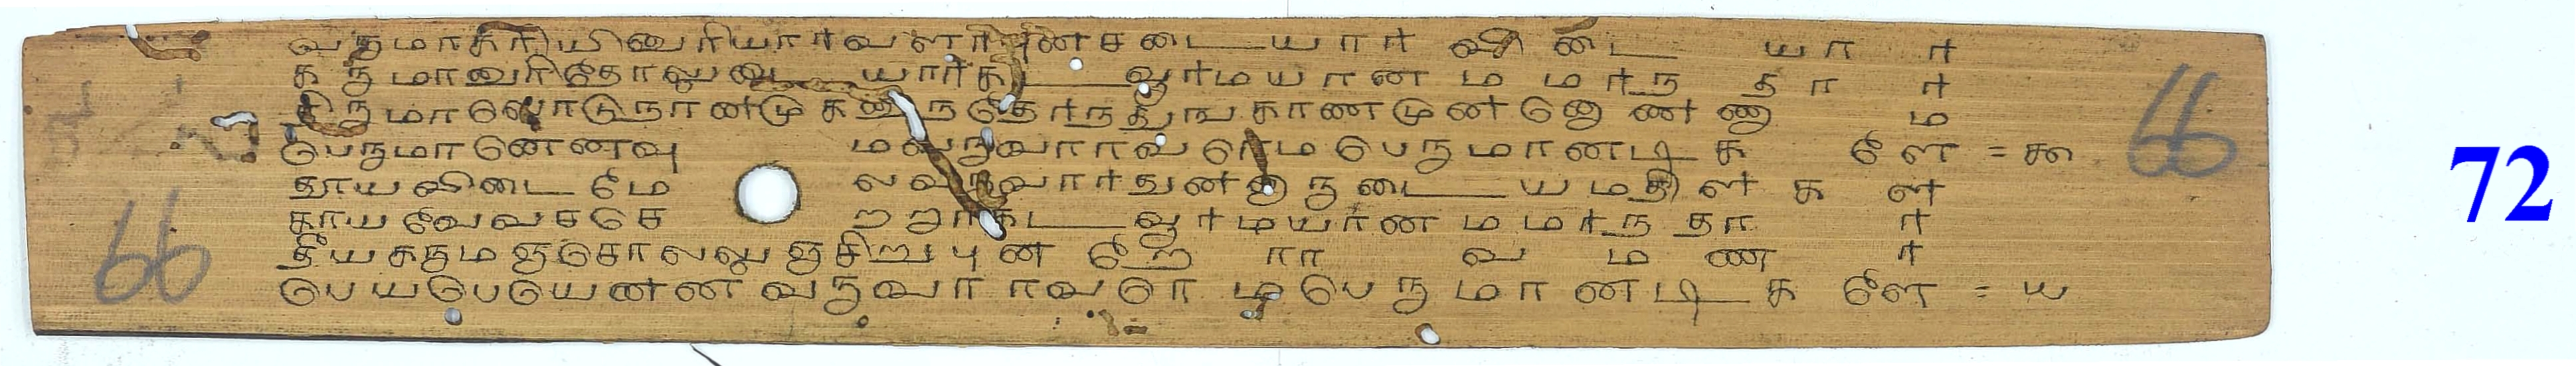 வருமாகரியினுரியார்வளர்புன்சடையார் விடை யா ர்
கருமானுரிதோலுடையார்கடவூர்மயான ம மர்ந தா ர்
திருமாலொடுநானமுகனுநதேர்ந்துங காணமுன்னொண்ணா ம
பெருமானெனவு மவருவாரவரெமபெருமானடிக ளே = ௯
தூயவிடைமே லவருவார்துன்னாருடையமதில்க ள்
காயவேவசசெ றறார்கடவூர்மயான ம மர்ந தா ர்
தீயகருமஞசொலலுஞசிறுபுன தே ரா வ ம ண ர்
பெயபெயென்ன வருவாரவரெ ம பெருமானடிக ளே = ௰
66
66
72